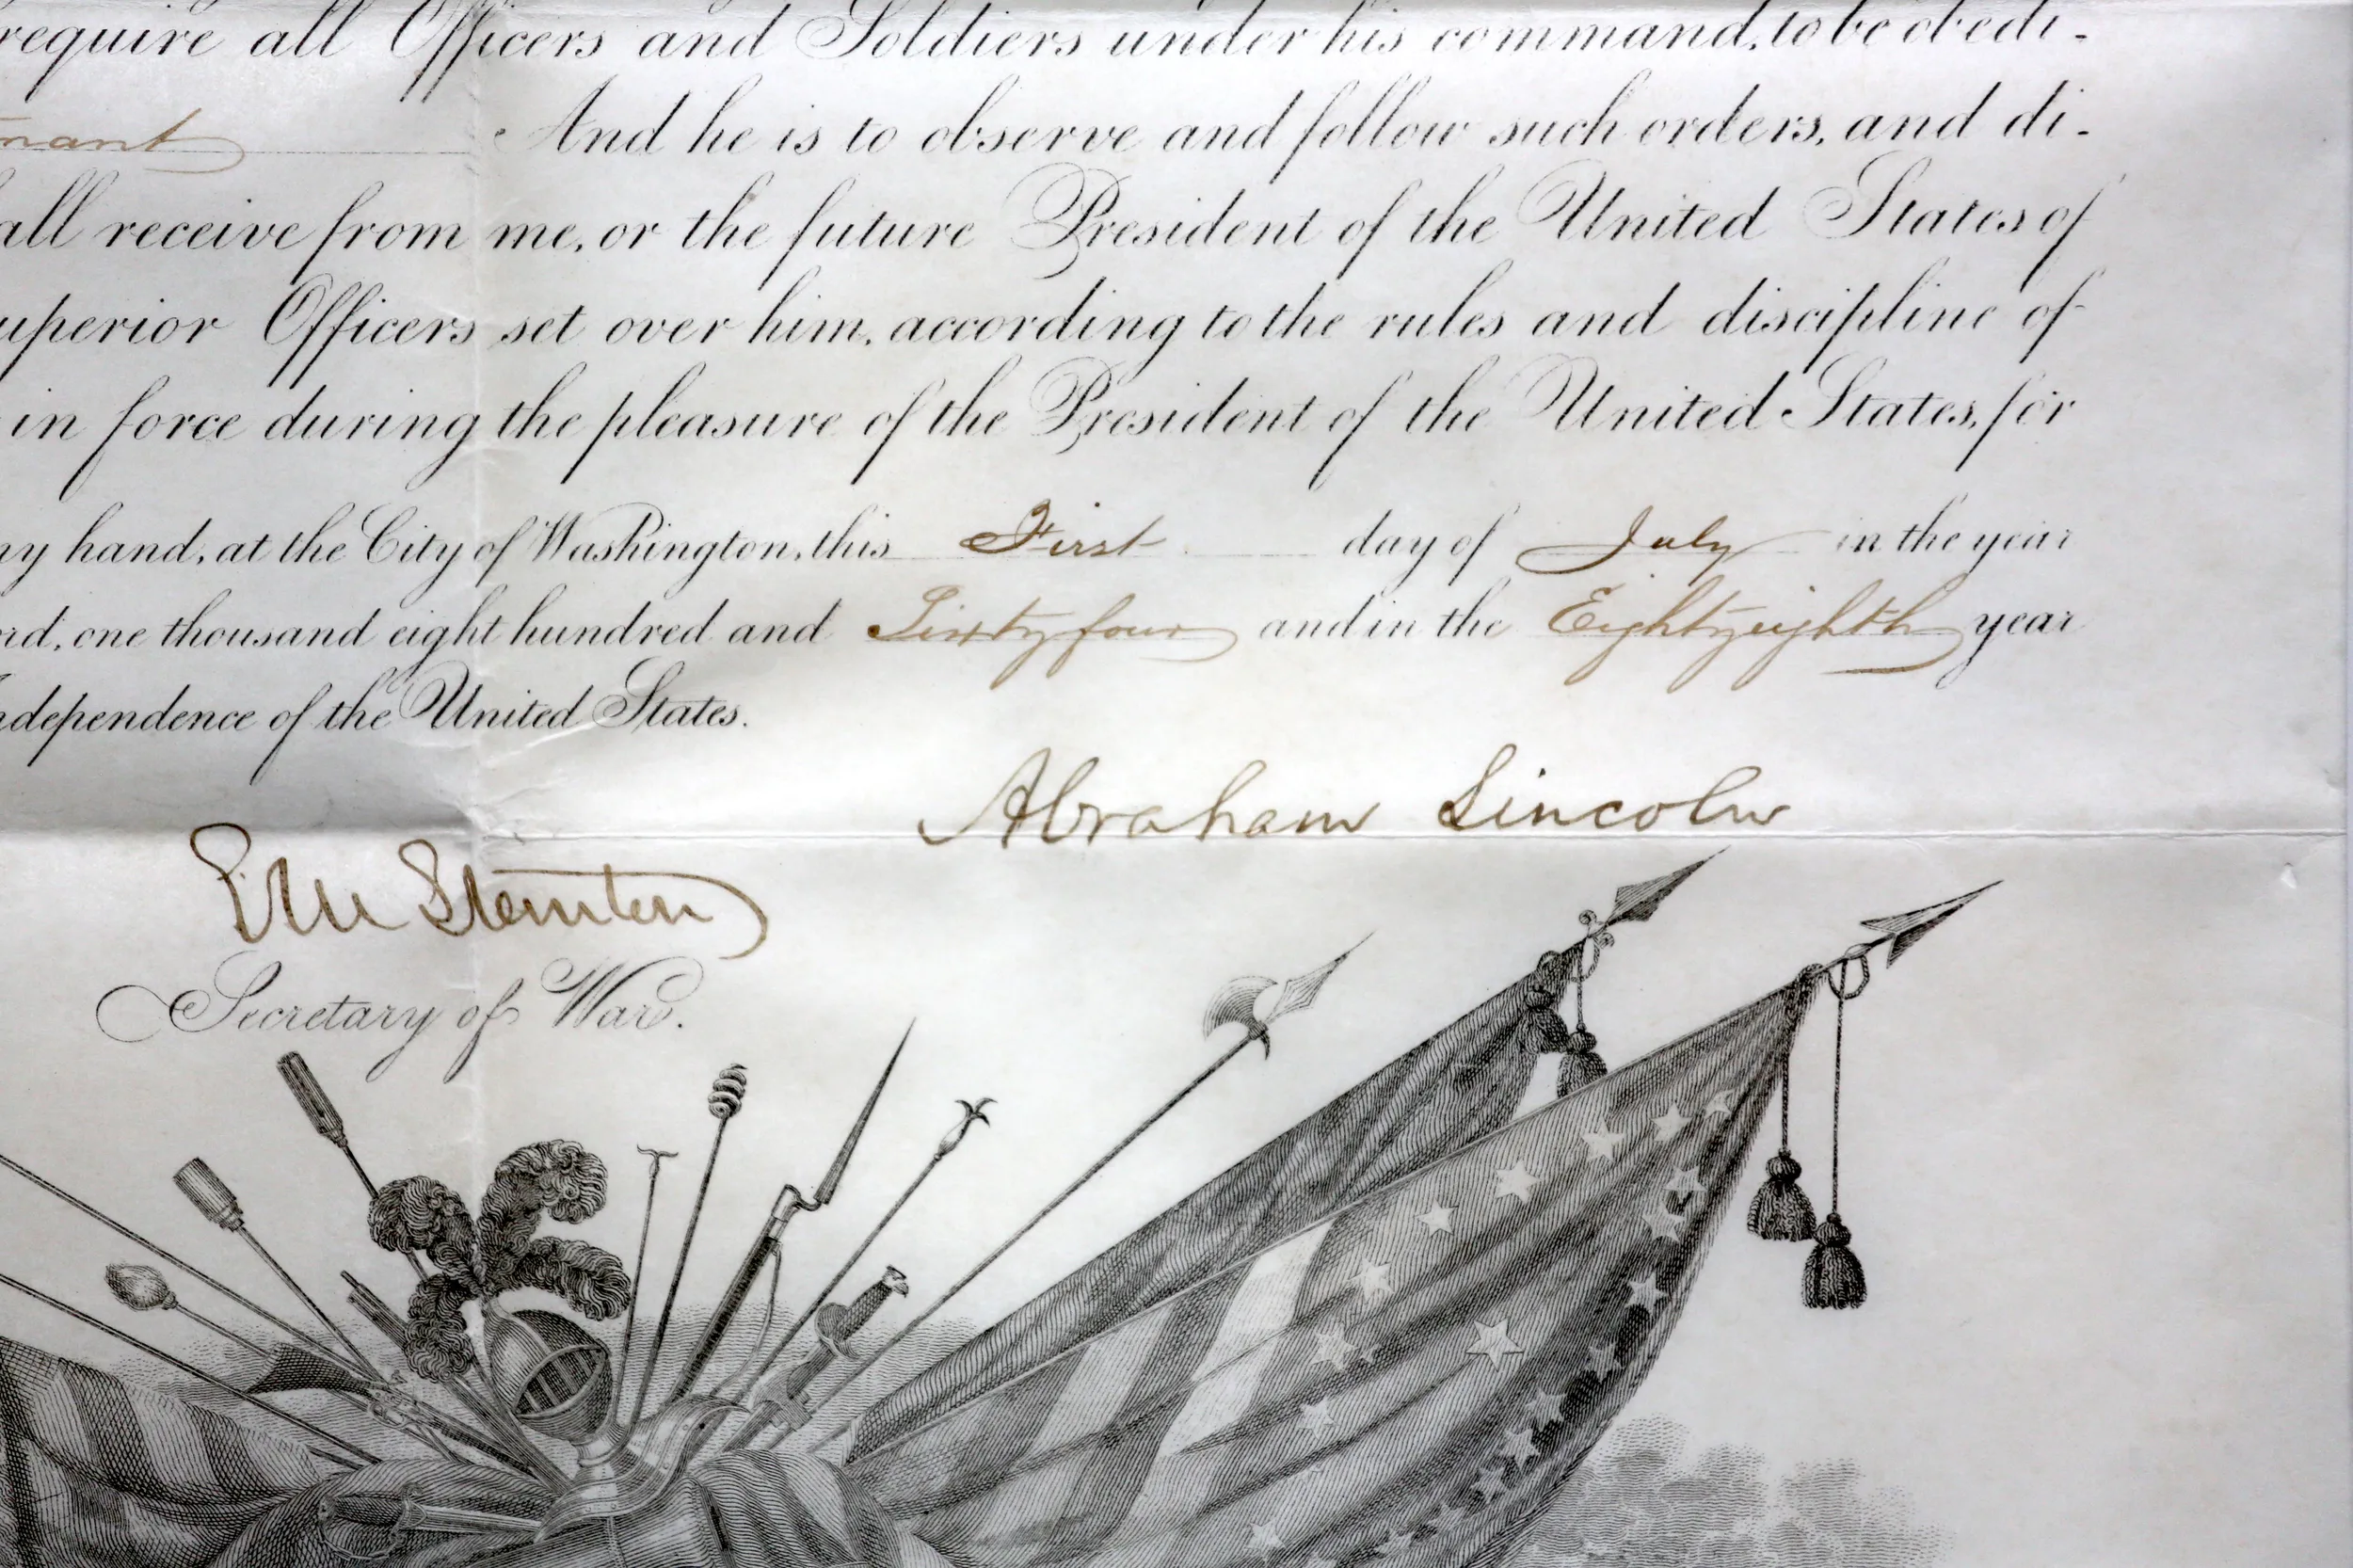 require all Officers and Soldiers under his command, to be obedi-
nant And he is to observe and follow such orders, and di-
all receive from me, or the future President of the United States of
uperior Officers set over him, according to the rules and discipline of
in force during the pleasure of the President of the United States, for
my hand, at the City of Washington, this First day of July in the year
ord, one thousand eight hundred and Sixty four and in the Eighty eighth year
ndependence of the United States.
Abraham Lincoln
Edwin M Stanton
Secretary of War.